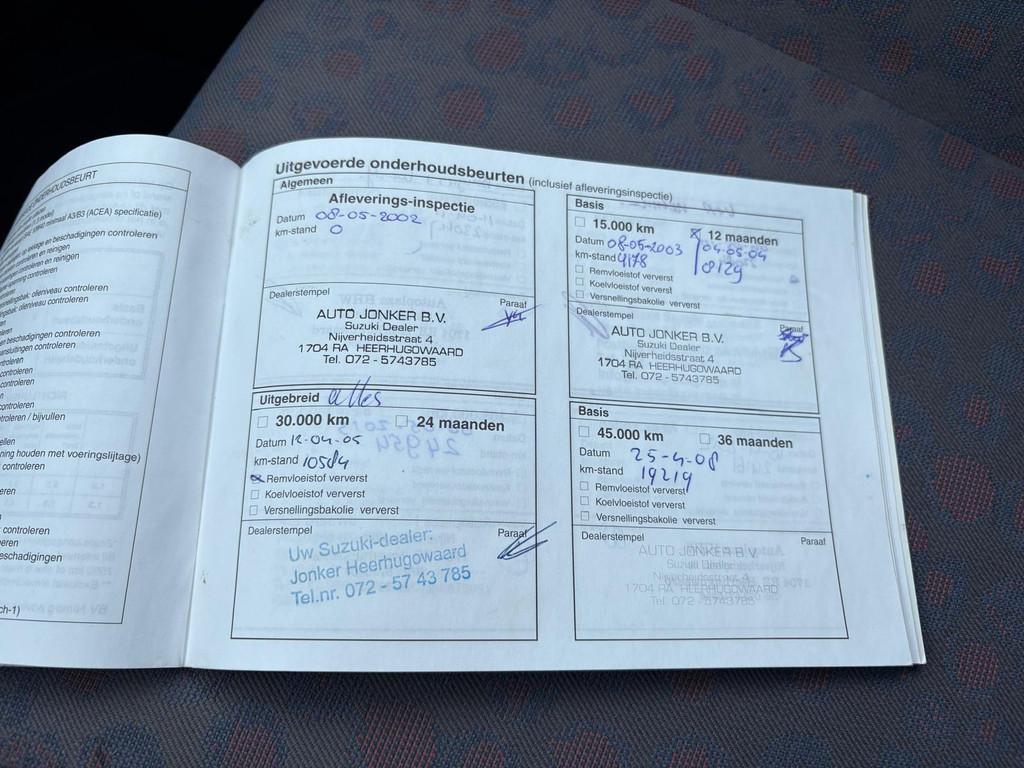 ONDERHOUDSBEURT
minimaal A3/B3 (ACEA) specificatie)
op lekkage en beschadigingen controleren
controleren en reinigen
controleren en reinigen
controleren
olieniveau controleren
olieniveau controleren
en beschadigingen controleren
aansluitingen controleren
controleren
controleren
controleren
controleren
controleren / bijvullen
ning houden met voeringslijtage)
controleren
controleren
eschadigingen
ch-1)
Uitgevoerde onderhoudsbeurten (inclusief afleveringsinspectie)
Algemeen
Afleverings-inspectie
Datum 08-05-2002
km-stand 0
Dealerstempel Paraaf
AUTO JONKER B.V.
Suzuki Dealer
Nijverheidsstraat 4
1704 RA HEERHUGOWAARD
Tel. 072 - 5743785
Basis
15.000 km 12 maanden
Datum 08-05-2003 04-05-04
km-stand 4178 8129
Remvloeistof ververst
Koelvloeistof ververst
Versnellingsbakolie ververst
Dealerstempel Paraaf
AUTO JONKER B.V.
Suzuki Dealer
Nijverheidsstraat 4
1704 RA HEERHUGOWAARD
Tel. 072 - 5743785
Uitgebreid alles
30.000 km 24 maanden
Datum 12-04-05
km-stand 10584
Remvloeistof ververst
Koelvloeistof ververst
Versnellingsbakolie ververst
Dealerstempel Paraaf
Uw Suzuki-dealer:
Jonker Heerhugowaard
Tel.nr. 072 - 57 43 785
Basis
45.000 km 36 maanden
Datum 25-4-08
km-stand 19219
Remvloeistof ververst
Koelvloeistof ververst
Versnellingsbakolie ververst
Dealerstempel Paraaf
AUTO JONKER B.V.
Suzuki Dealer
Nijverheidsstraat 4
1704 RA HEERHUGOWAARD
Tel. 072 - 5743785